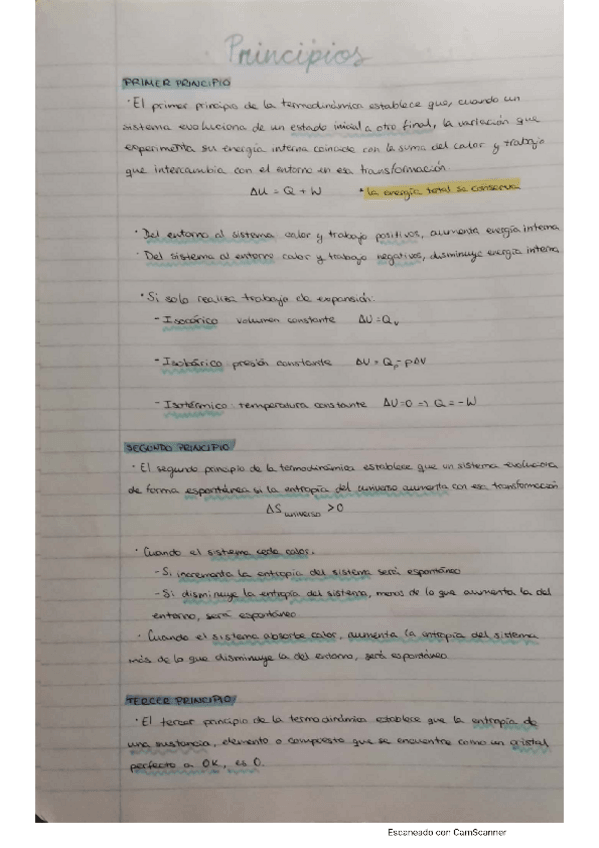 Principios
PRIMER PRINCIPIO
· El primer principio de la termodinámica establece que, cuando un
sistema evoluciona de un estado inicial a otro final, la variación que
experimenta su energía interna coincide con la suma del calor y trabajo
que intercambia con el entorno en esa transformación.
ΔU = Q + W · la energía total se conserva
· Del entorno al sistema calor y trabajo positivos, aumenta energía interna
· Del sistema al entorno calor y trabajo negativos, disminuye energía interna
· Si solo realiza trabajo de expansión:
- Isocórico volumen constante ΔU = Qv
- Isobárico presión constante ΔU = Qp - pΔV
- Isotérmico: temperatura constante ΔU = 0 => Q = -W
SEGUNDO PRINCIPIO
· El segundo principio de la termodinámica establece que un sistema evoluciona
de forma espontánea si la entropía del universo aumenta con esa transformación
ΔS universo > 0
· Cuando el sistema cede calor.
- Si incrementa la entropía del sistema será espontáneo
- Si disminuye la entropía del sistema, menos de lo que aumenta la del
entorno, será espontáneo
· Cuando el sistema absorbe calor, aumenta la entropía del sistema
más de lo que disminuye la del entorno, será espontáneo
TERCER PRINCIPIO
· El tercer principio de la termodinámica establece que la entropía de
una sustancia, elemento o compuesto que se encuentre como un cristal
perfecto a 0K, es 0.
Escaneado con CamScanner